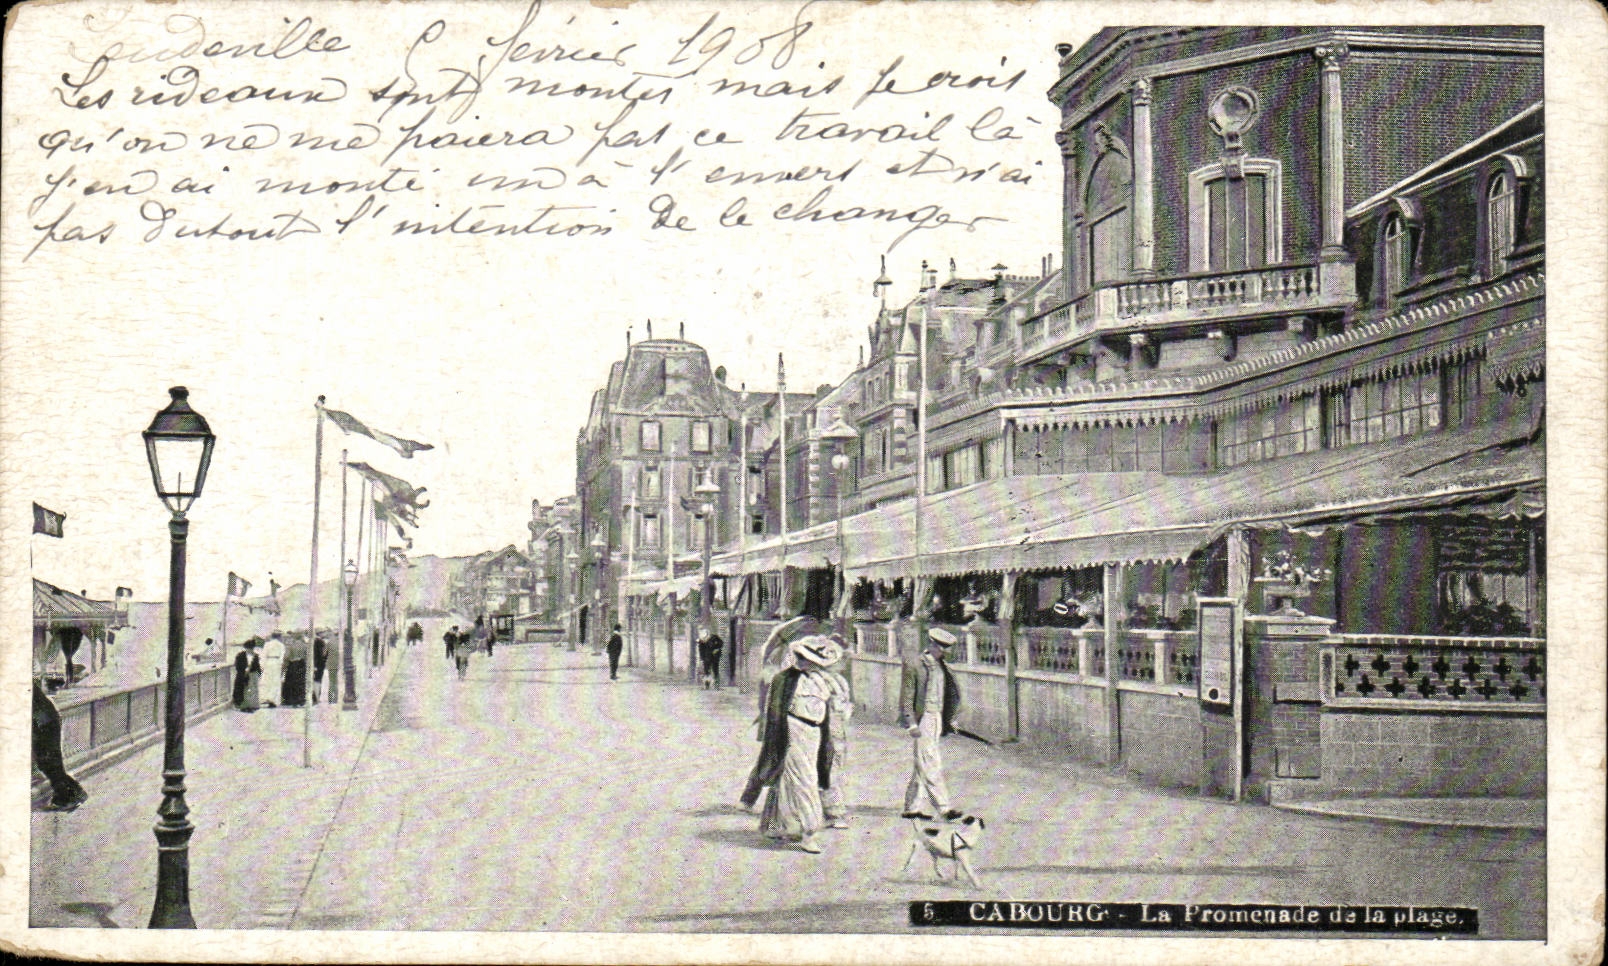 Loudeville 8 février 1908
Les rideaux sont montés mais je crois
qu'on ne me paiera pas ce travail là
j'en ai monté un à l'envers et n'ai
pas dutout l'intention de le changer
5. CABOURG - La Promenade de la plage.